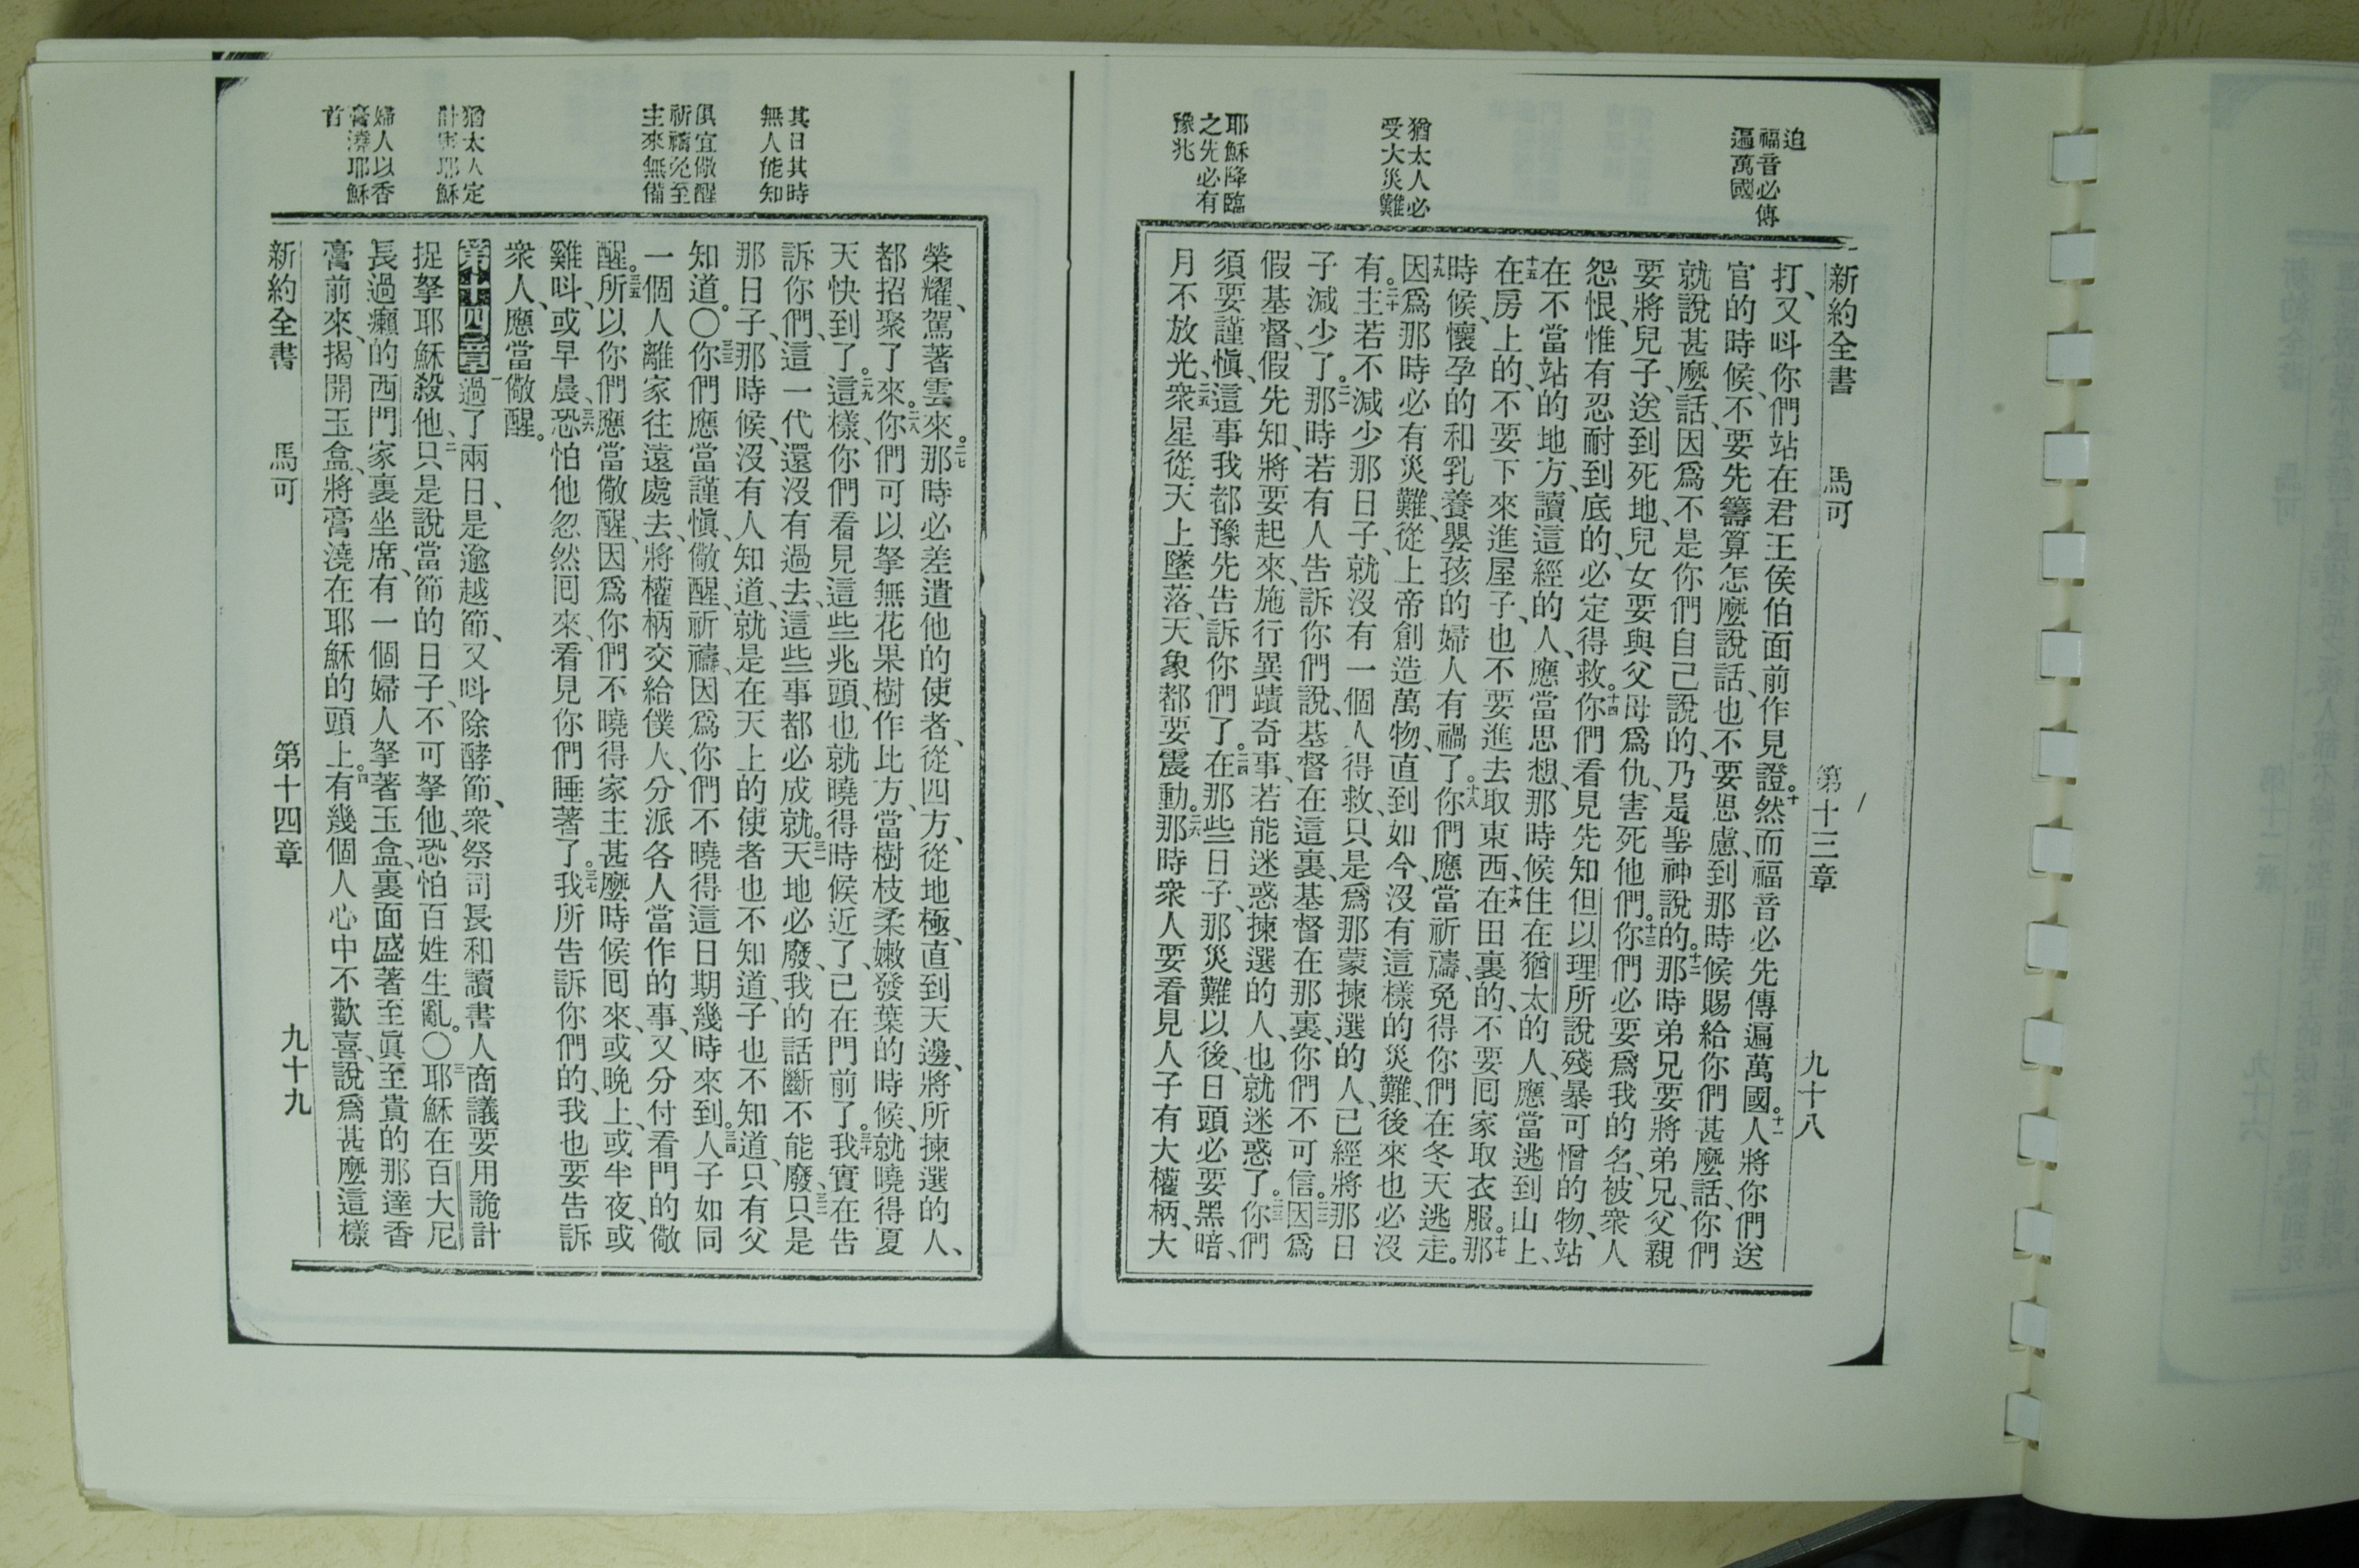 迫
福音必傳
遍萬國
猶太人必
受大災難
耶穌降臨
之先必有
豫兆
新約全書 馬可 第十三章 九十八
打、又呌你們站在君王侯伯面前作見證。十然而福音必先傳遍萬國。十一人將你們送
官的時候、不要先籌算怎麽說話、也不要思慮、到那時候賜給你們甚麽話、你們
就說甚麽話、因爲不是你們自己說的、乃是聖神說的。十二那時弟兄要將弟兄、父親
要將兒子、送到死地、兒女要與父母爲仇、害死他們。十三你們必要爲我的名、被衆人
怨恨、惟有忍耐到底的、必定得救。十四你們看見先知但以理所說殘暴可憎的物、站
在不當站的地方、讀這經的人、應當思想、那時候住在猶太的人、應當逃到山上、
十五在房上的、不要下來進屋子、也不要進去取東西、十六在田裏的、不要囘家取衣服。十七那
時候、懷孕的和乳養嬰孩的婦人有禍了。十八你們應當祈禱、免得你們在冬天逃走。
十九因爲那時必有災難、從上帝創造萬物、直到如今、沒有這樣的災難、後來也必沒
有。二十主若不減少那日子、就沒有一個人得救、只是爲那蒙揀選的人、已經將那日
子減少了。二一那時若有人告訴你們說、基督在這裏、基督在那裏、你們不可信。二二因爲
假基督、假先知、將要起來、施行異蹟奇事、若能迷惑揀選的人、也就迷惑了。二三你們
須要謹愼、這事我都豫先告訴你們了。二四在那些日子、那災難以後、日頭必要黑暗、
月不放光、二五衆星從天上墜落、天象都要震動。二六那時衆人要看見人子有大權柄、大
其日其時
無人能知
俱宜儆醒
祈禱免至
主來無備
猶太人定
計害耶穌
婦人以香
膏澆耶穌
首
榮耀、駕著雲來。二七那時必差遣他的使者、從四方、從地極、直到天邊、將所揀選的人、
都招聚了來。二八你們可以拏無花果樹作比方、當樹枝柔嫩發葉的時候、就曉得夏
天快到了。二九這樣、你們看見這些兆頭、也就曉得時候近了、已在門前了。三十我實在告
訴你們、這一代還沒有過去、這些事都必成就。三一天地必廢、我的話斷不能廢、三二只是
那日子、那時候、沒有人知道、就是在天上的使者也不知道、子也不知道、只有父
知道。〇三三你們應當謹愼、儆醒、祈禱、因爲你們不曉得這日期幾時來到。三四人子如同
一個人離家往遠處去、將權柄交給僕人、分派各人當作的事、又分付看門的儆
醒。三五所以你們應當儆醒、因爲你們不曉得家主甚麽時候囘來、或晚上、或半夜、或
雞呌、或早晨、三六恐怕他忽然囘來、看見你們睡著了。三七我所告訴你們的、我也要告訴
衆人、應當儆醒。
第十四章 一過了兩日、是逾越節、又呌除酵節、衆祭司長和讀書人商議要用詭計
捉拏耶穌殺他、二只是說當節的日子、不可拏他、恐怕百姓生亂。〇三耶穌在百大尼
長過癩的西門家裏坐席、有一個婦人拏著玉盒、裏面盛著至眞至貴的那達香
膏前來、揭開玉盒、將膏澆在耶穌的頭上。四有幾個人心中不歡喜、說爲甚麽這樣
新約全書 馬可 第十四章 九十九